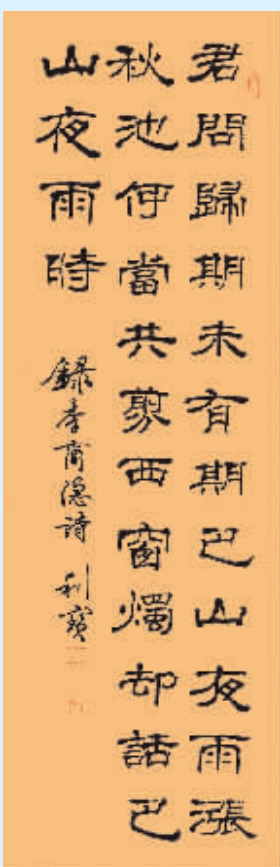 君問歸期未有期巴山夜雨漲
秋池何當共剪西窗燭却話巴
山夜雨時
録李商隐詩 利寶